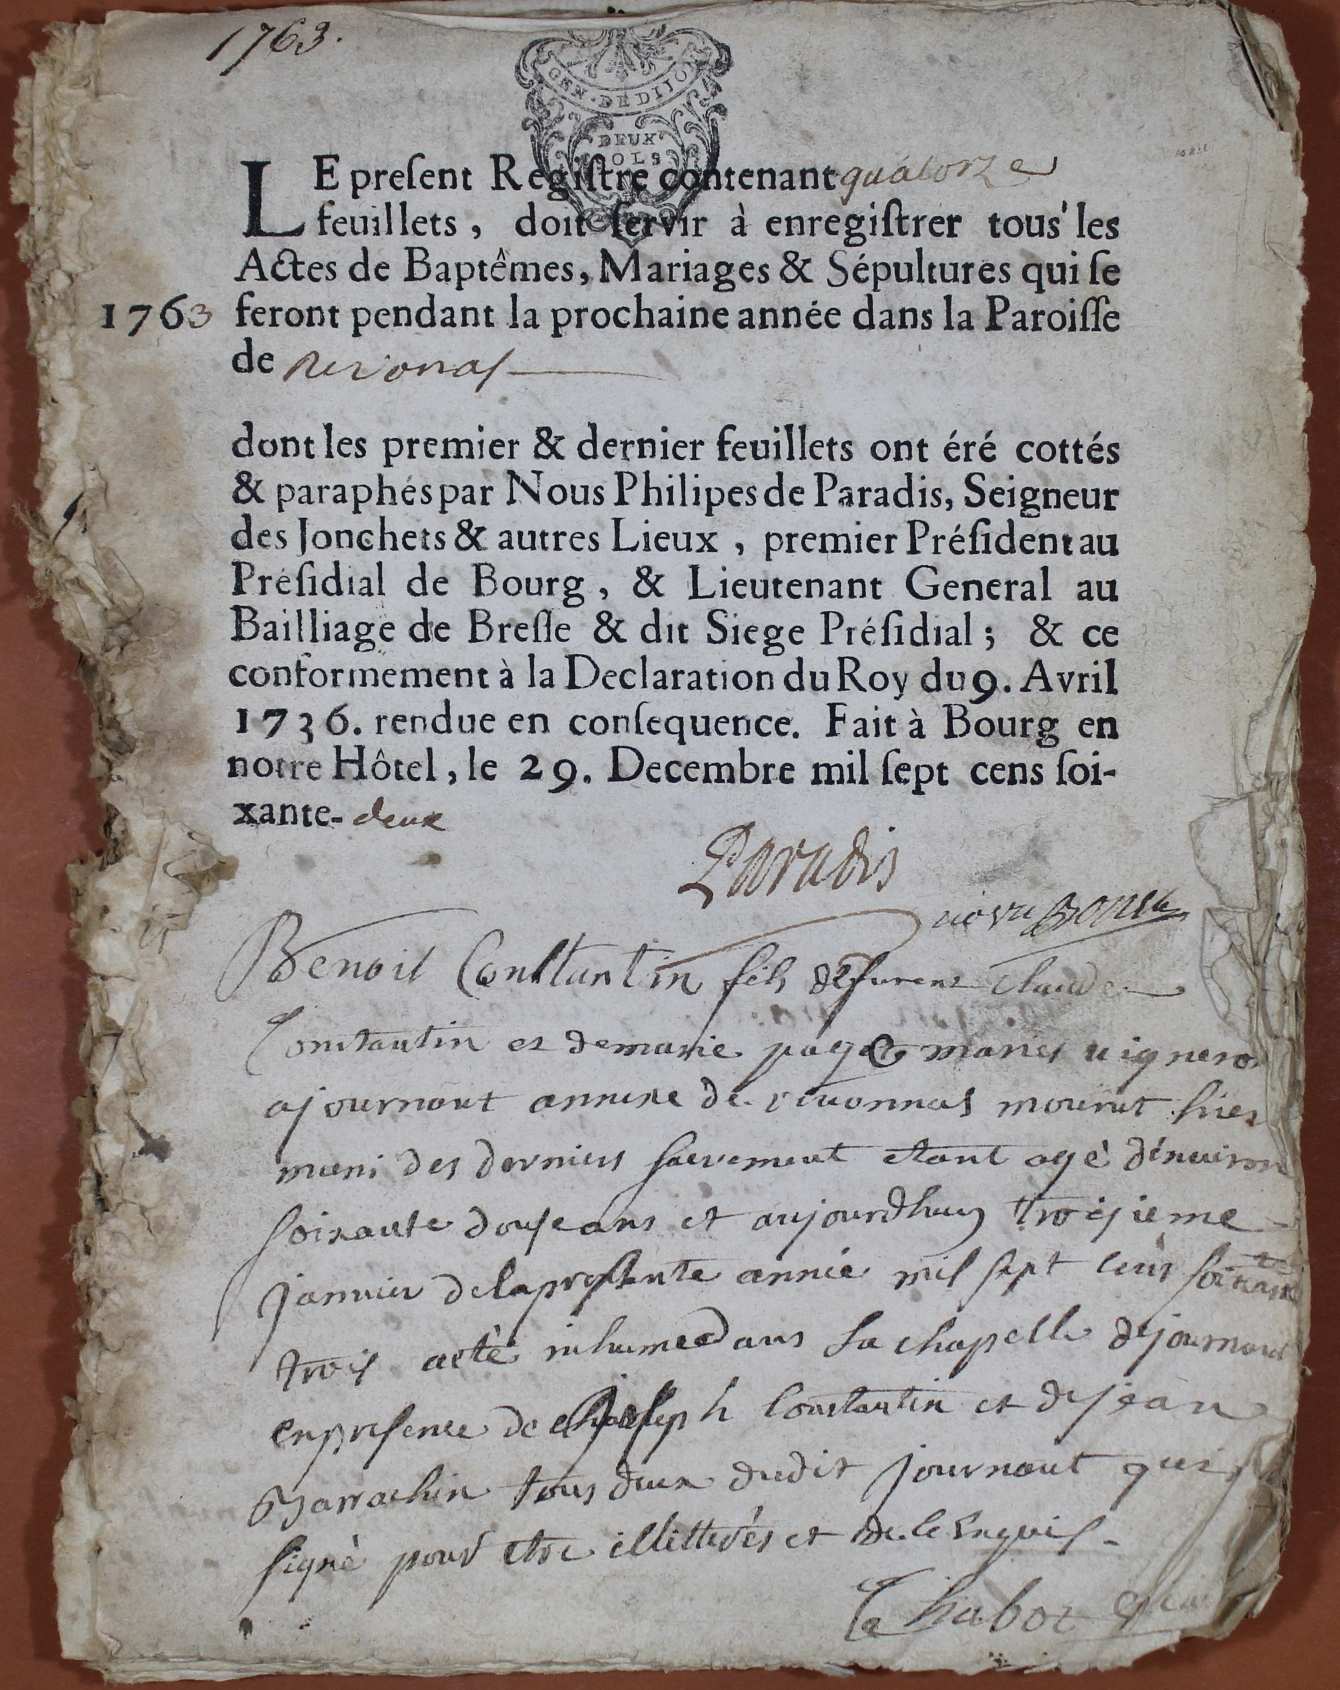 1763.
GEN. DE DIJON
DEUX
SOLS
LE preſent Regiſtre contenant quatorze
feuillets, doit ſervir à enregiſtrer tous les
Actes de Baptêmes, Mariages & Sépultures qui ſe
1763 feront pendant la prochaine année dans la Paroiſſe
de Revonas
dont les premier & dernier feuillets ont éré cottés
& paraphés par Nous Philipes de Paradis, Seigneur
des Jonchets & autres Lieux, premier Préſident au
Préſidial de Bourg, & Lieutenant General au
Bailliage de Breſſe & dit Siege Préſidial; & ce
conformement à la Declaration du Roy du 9. Avril
1736. rendue en conſequence. Fait à Bourg en
notre Hôtel, le 29. Decembre mil ſept cens ſoi-
xante-deux
Paradis
Benoit Constantin fils de Claude
Constantin et de marie pagot mariés vigneron
a journant annexe de revonnas mourut hier
muni des derniers sacrement etant agé d'environ
soixante douse ans et aujourdhuy troisieme
janvier de la presente année mil sept cens soixante
trois a eté inhumé dans la chapelle de journant
en presence de joseph Constantin et de jean
tous deux dudit journant qui
signé pour etre illitterés et de ce enquis.
Chabot curé